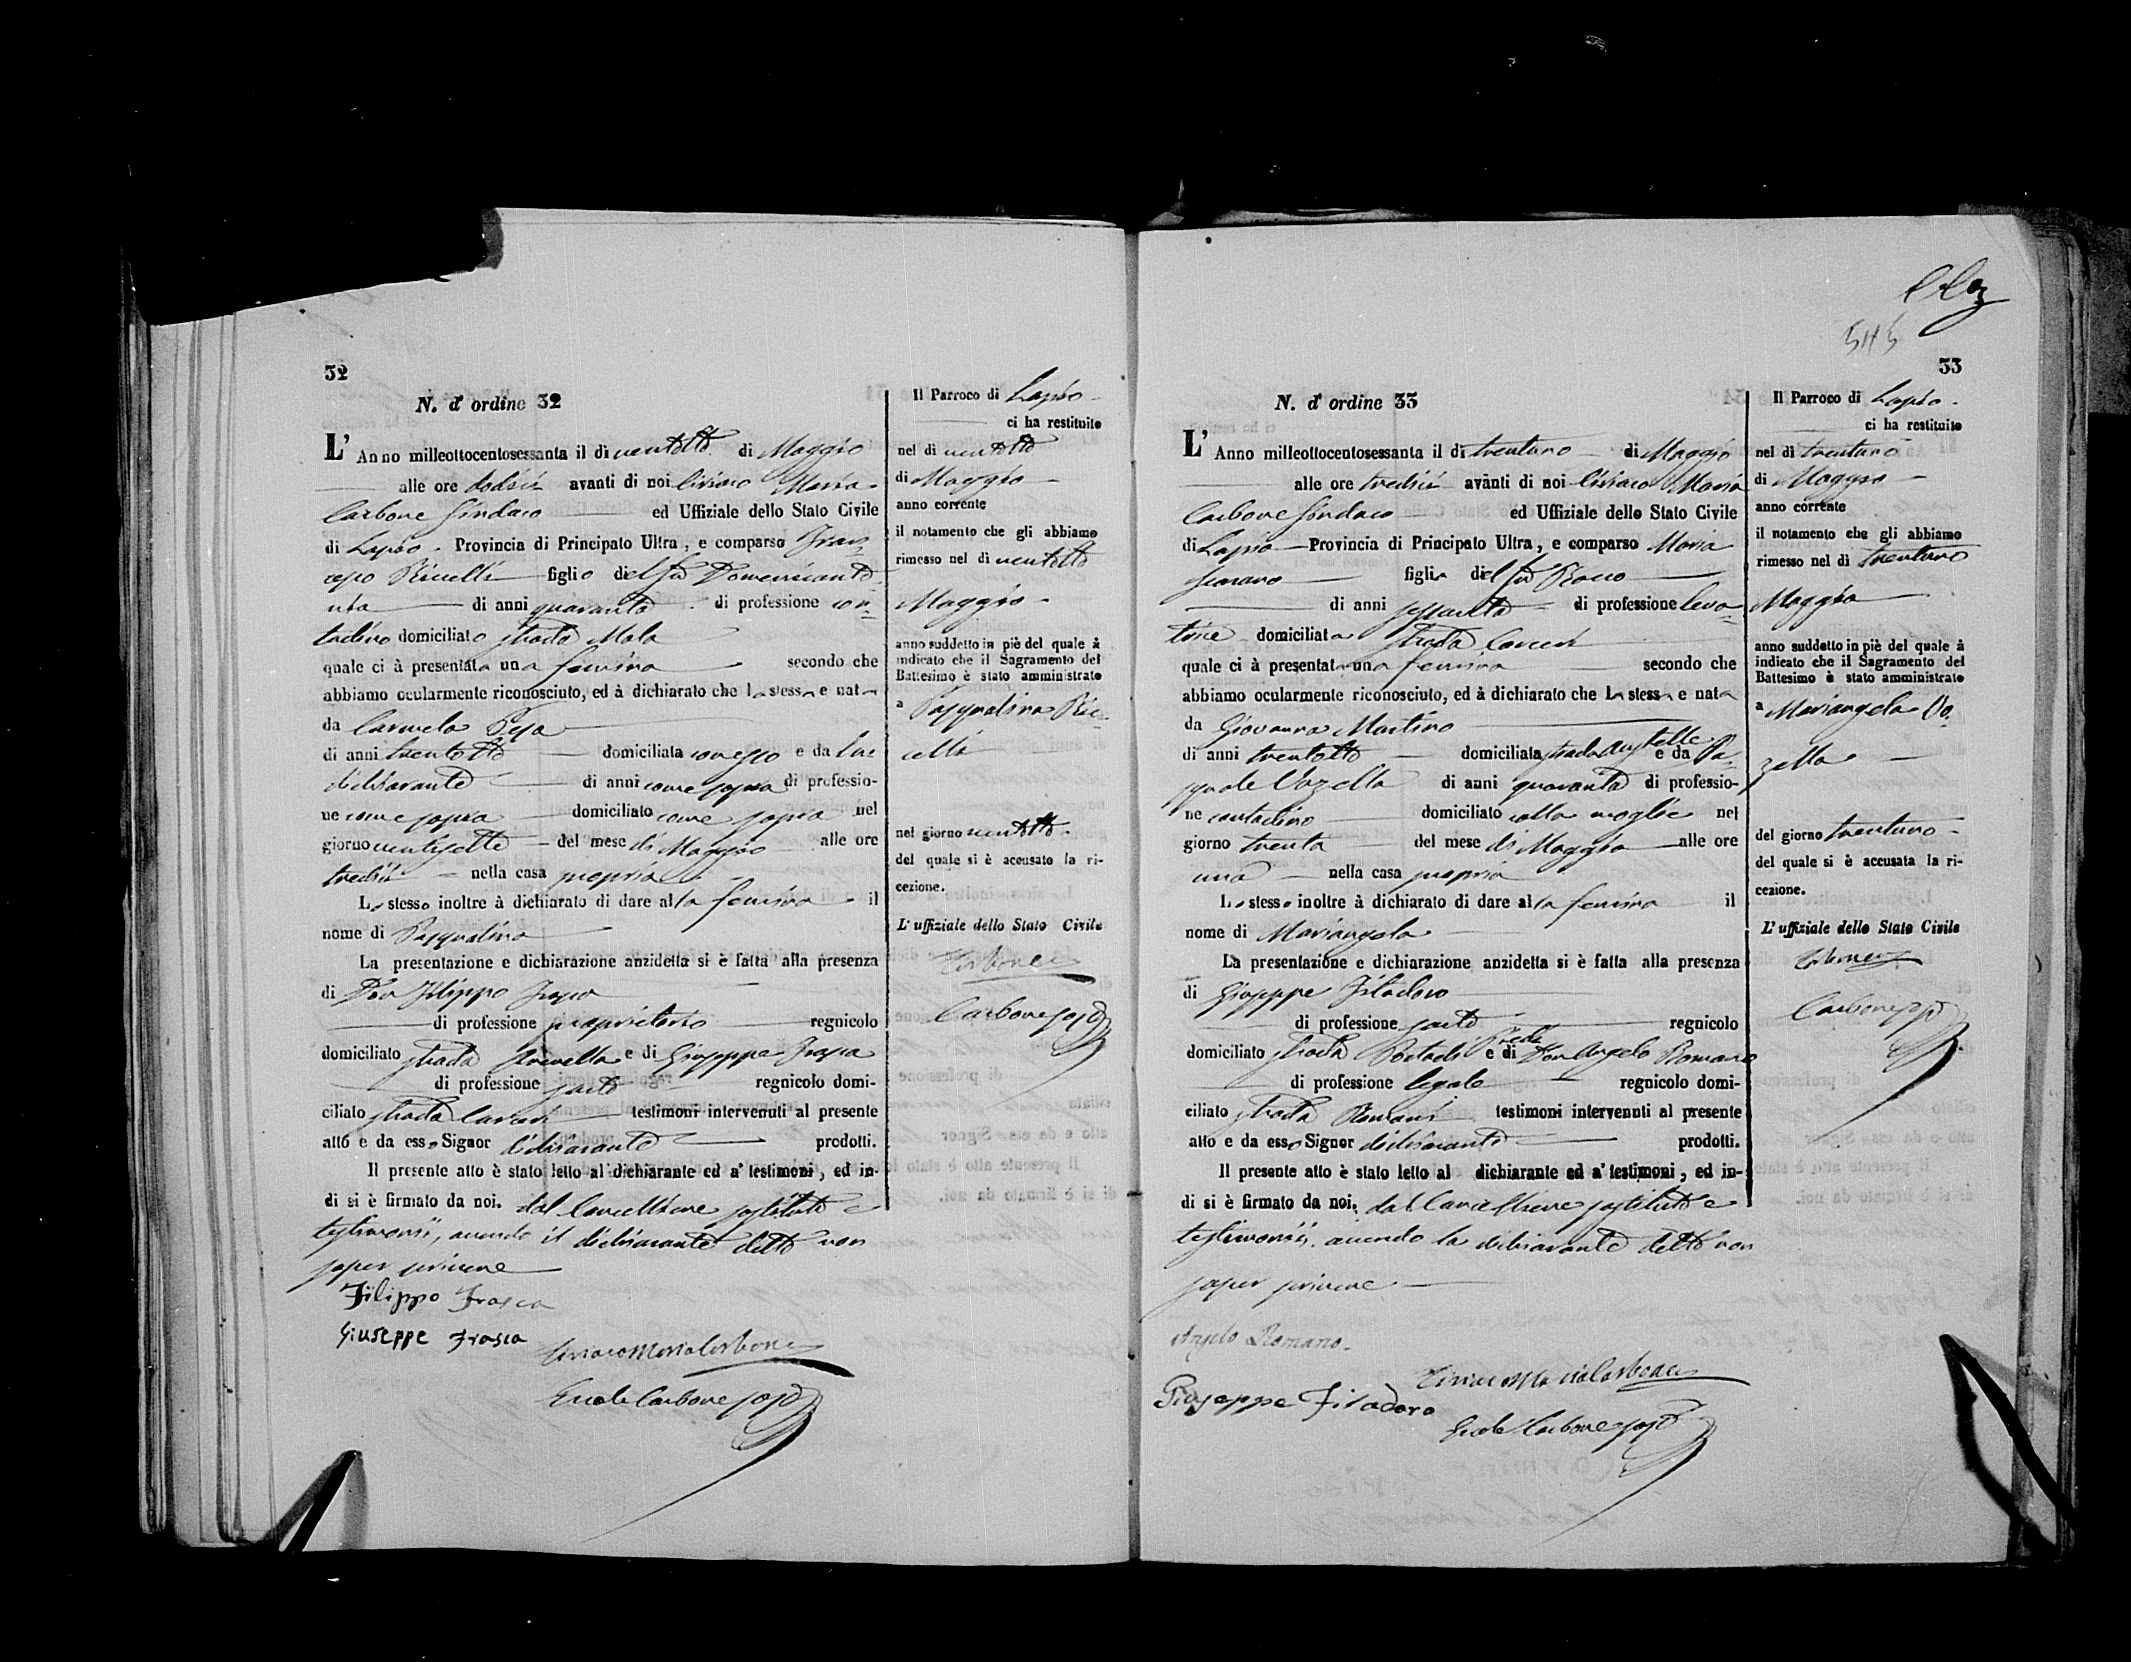 32
N. d'ordine 32
L' Anno milleottocentosessanta il dì ventotto di Maggio
alle ore dodici avanti di noi Ciriaco Maria
Carbone Sindaco ed Uffiziale dello Stato Civile
di Lapio Provincia di Principato Ultra, e comparso Fran=
cesco Ricelli figlio del fu Domenicanto=
nio di anni quaranta di professione con=
tadino domiciliato strada Mala
quale ci à presentata una femina secondo che
abbiamo ocularmente riconosciuto, ed à dichiarato che la stessa e nata
da Carmela Pesa
di anni trentotto domiciliata con esso e da lui
dichiarante di anni come sopra di professio-
ne come sopra domiciliato come sopra nel
giorno ventisette del mese di Maggio alle ore
tredici nella casa propria
Lo stesso inoltre à dichiarato di dare alla femina il
nome di Pasqualina
La presentazione e dichiarazione anzidetta si è fatta alla presenza
di Don Filippo Frasca
di professione proprietario regnicolo
domiciliato strada e di Giuseppe Frasca
di professione sarto regnicolo domi-
ciliato strada Carceri testimoni intervenuti al presente
atto e da esso Signor dichiarante prodotti.
Il presente atto è stato letto al dichiarante ed a' testimoni, ed in-
di si è firmato da noi. dal Cancelliere sostituto e
testimonii, avendo il dichiarante detto non
saper scrivere
Filippo Frasca
Giuseppe Frasca
Ciriaco Maria Carbone
Ercole Carbone sost
Il Parroco di Lapio
ci ha restituito
nel dì ventotto
di Maggio
anno corrente
il notamento che gli abbiamo
rimesso nel dì ventotto
Maggio
anno suddetto in piè del quale à
indicato che il Sagramento del
Battesimo è stato amministrato
a Pasqualina Ri=
celli
nel giorno ventotto
del quale si è accusato la ri-
cezione.
L'uffiziale dello Stato Civile
Carbone
Carbone sost
545
33
N. d'ordine 33
L' Anno milleottocentosessanta il dì trentuno di Maggio
alle ore tredici avanti di noi Ciriaco Maria
Carbone Sindaco ed Uffiziale dello Stato Civile
di Lapio Provincia di Principato Ultra, e comparso Maria
figlia del fu Rocco
di anni sessanta di professione leva=
trice domiciliata strada Carceri
quale ci à presentata una femina secondo che
abbiamo ocularmente riconosciuto, ed à dichiarato che la stessa e nata
da Giovanna Martino
di anni trentotto domiciliata strada e da Pa=
squale Vozella di anni quaranta di professio-
ne contadino domiciliato colla moglie nel
giorno trenta del mese di Maggio alle ore
una nella casa propria
Lo stesso inoltre à dichiarato di dare alla femina il
nome di Mariangela
La presentazione e dichiarazione anzidetta si è fatta alla presenza
di Giuseppe Filadoro
di professione sarto regnicolo
domiciliato strada e di Don Angelo Romano
di professione legale regnicolo domi-
ciliato strada Romani testimoni intervenuti al presente
atto e da esso Signor dichiarante prodotti.
Il presente atto è stato letto al dichiarante ed a' testimoni, ed in-
di si è firmato da noi, dal Cancelliere sostituto e
testimonii, avendo la dichiarante detto non
saper scrivere
Angelo Romano
Giuseppe Filadoro
Ciriaco Maria Carbone
Ercole Carbone sost
Il Parroco di Lapio
ci ha restituito
nel dì trentuno
di Maggio
anno corrente
il notamento che gli abbiamo
rimesso nel dì trentuno
Maggio
anno suddetto in piè del quale à
indicato che il Sagramento del
Battesimo è stato amministrato
a Mariangela Vo=
zella
del giorno trentuno
del quale si è accusata la ri-
cezione.
L'uffiziale dello Stato Civile
Carbone
Carbone sost